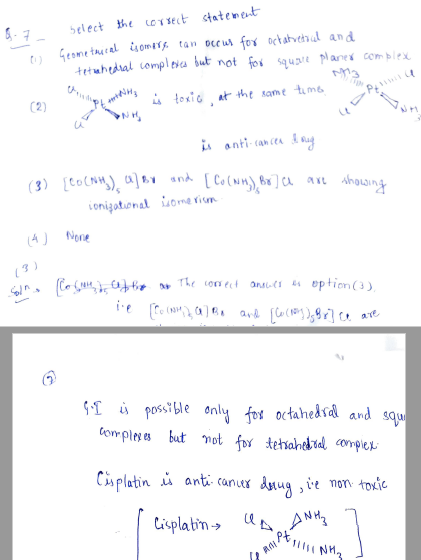 Q.7_ select the correct statement
(1) Geometrical isomers can occur for octahedral and
tetrahedral complexes but not for square planer complex
(2) Cl Cl Pt NH3 NH3 is toxic, at the same time NH3 Cl Pt Cl NH3
is anti-cancer drug
(3) [Co(NH3)5 Cl]Br and [Co(NH3)5Br]Cl are showing
ionisational isomerism
(4) None
(3)
Soln → The correct answer is option(3)
i.e [Co(NH3)5Cl]Br and [Co(NH3)5Br]Cl are
G.I is possible only for octahedral and squ
complexes but not for tetrahedral complex
Cisplatin is anti-cancer drug, i.e non-toxic
[Cisplatin→ Cl Cl Pt NH3 NH3]